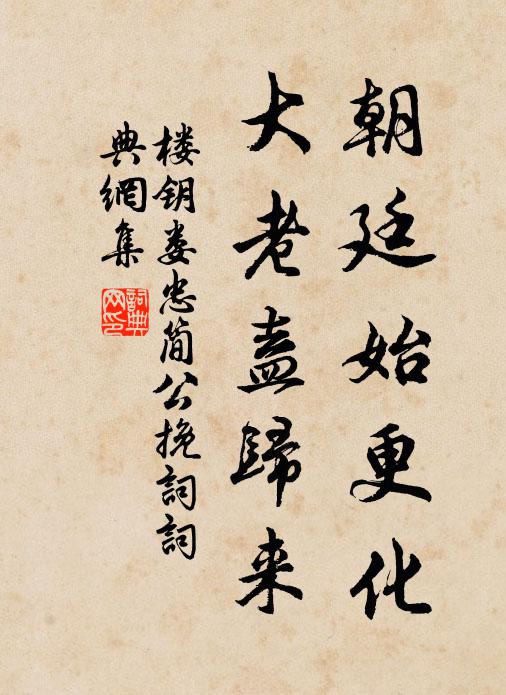 朝廷始更化
大老盍歸来
楼钥娄忠简公挽詞詞
典網集
詞典网印